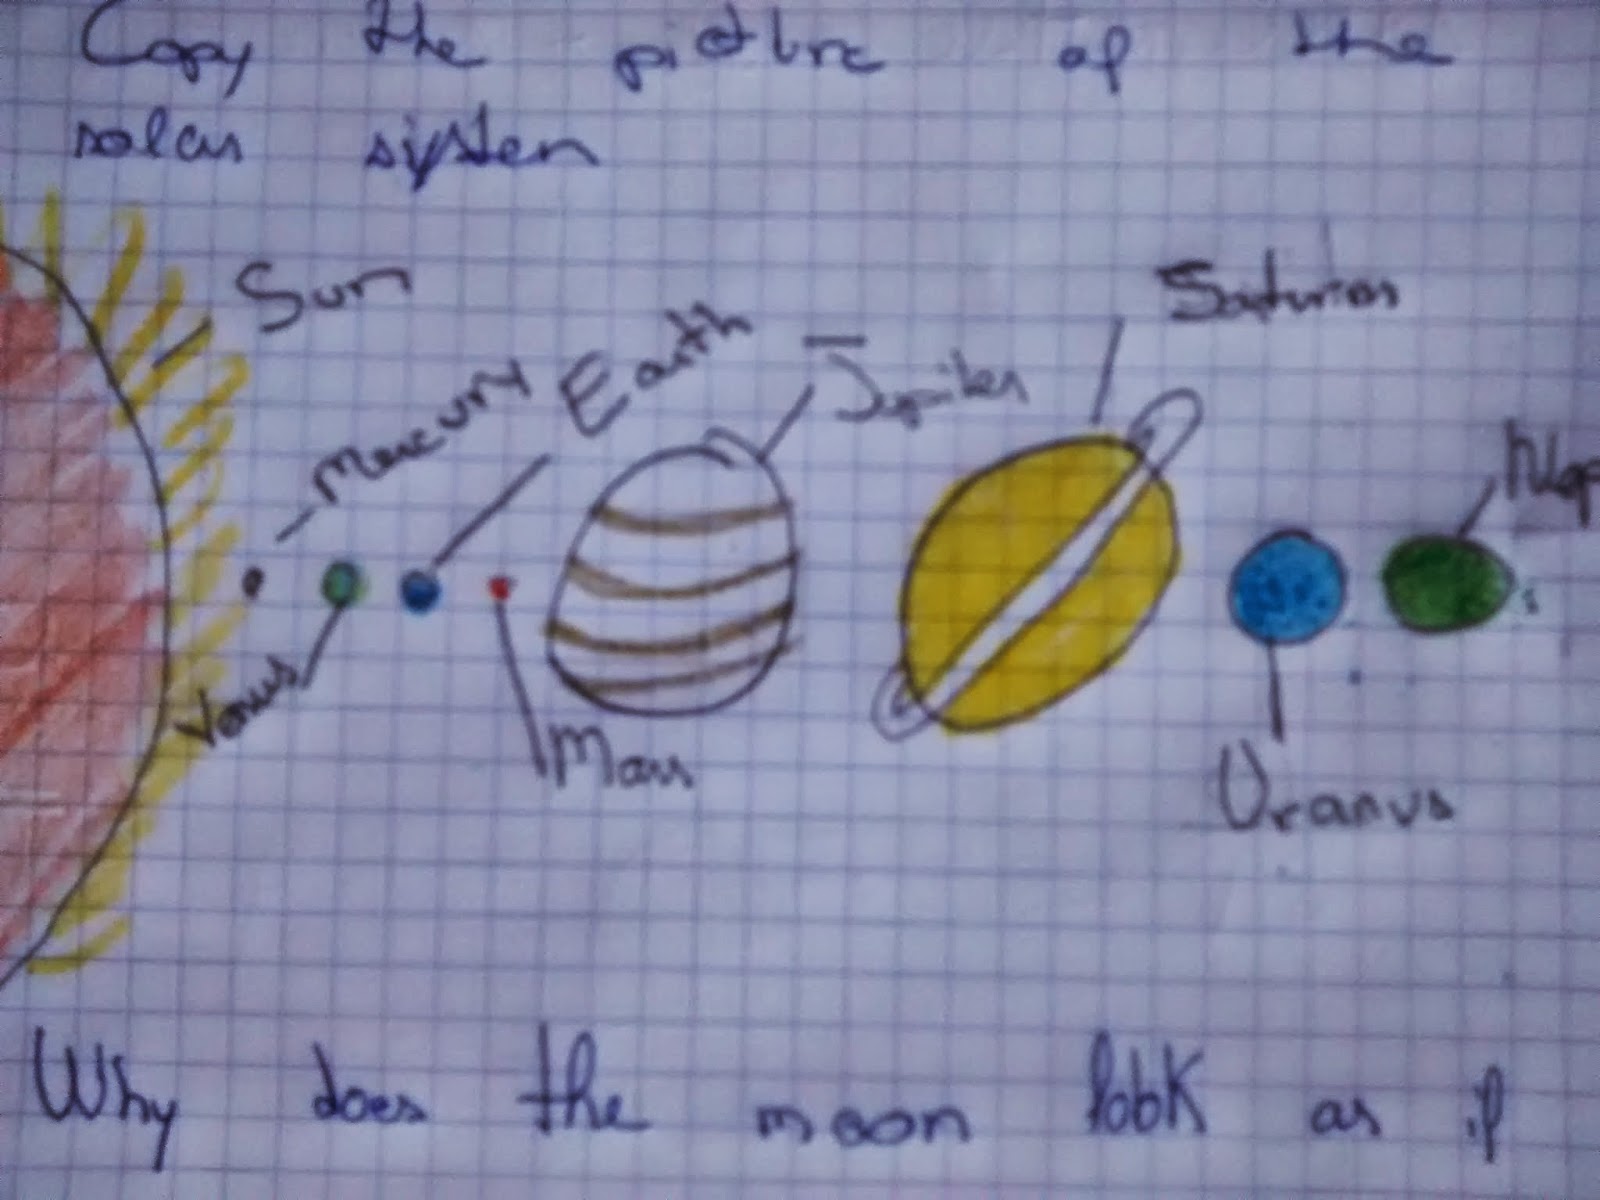 Copy the picture of the
solar system
Sun
Mercury
Earth
Jupiter
Saturno
Nep
Venus
Mars
Uranus
Why does the moon look as if